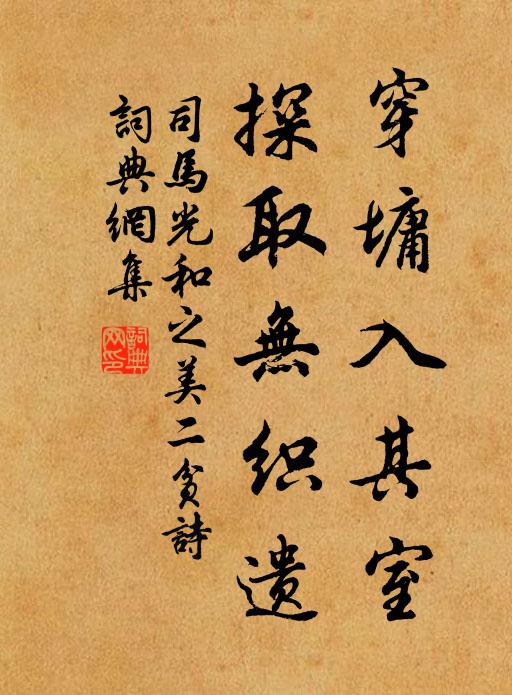 穿墉入其室
探取無织遺
司馬光和之美二貧詩
詞典網集
詞典網印